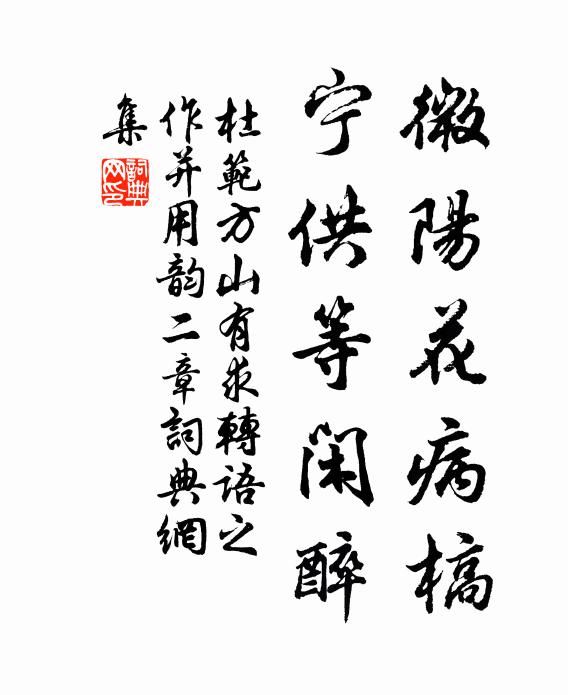 微陽花病槁
宁供等闲醉
杜範方山有求轉語之
作并用韵二章詞典網
集
詞典
网印